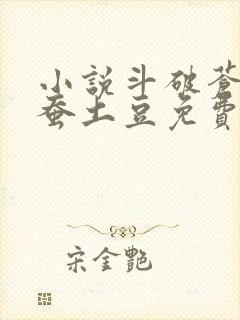 小說斗破蒼
蚕土豆免費
宋金艷